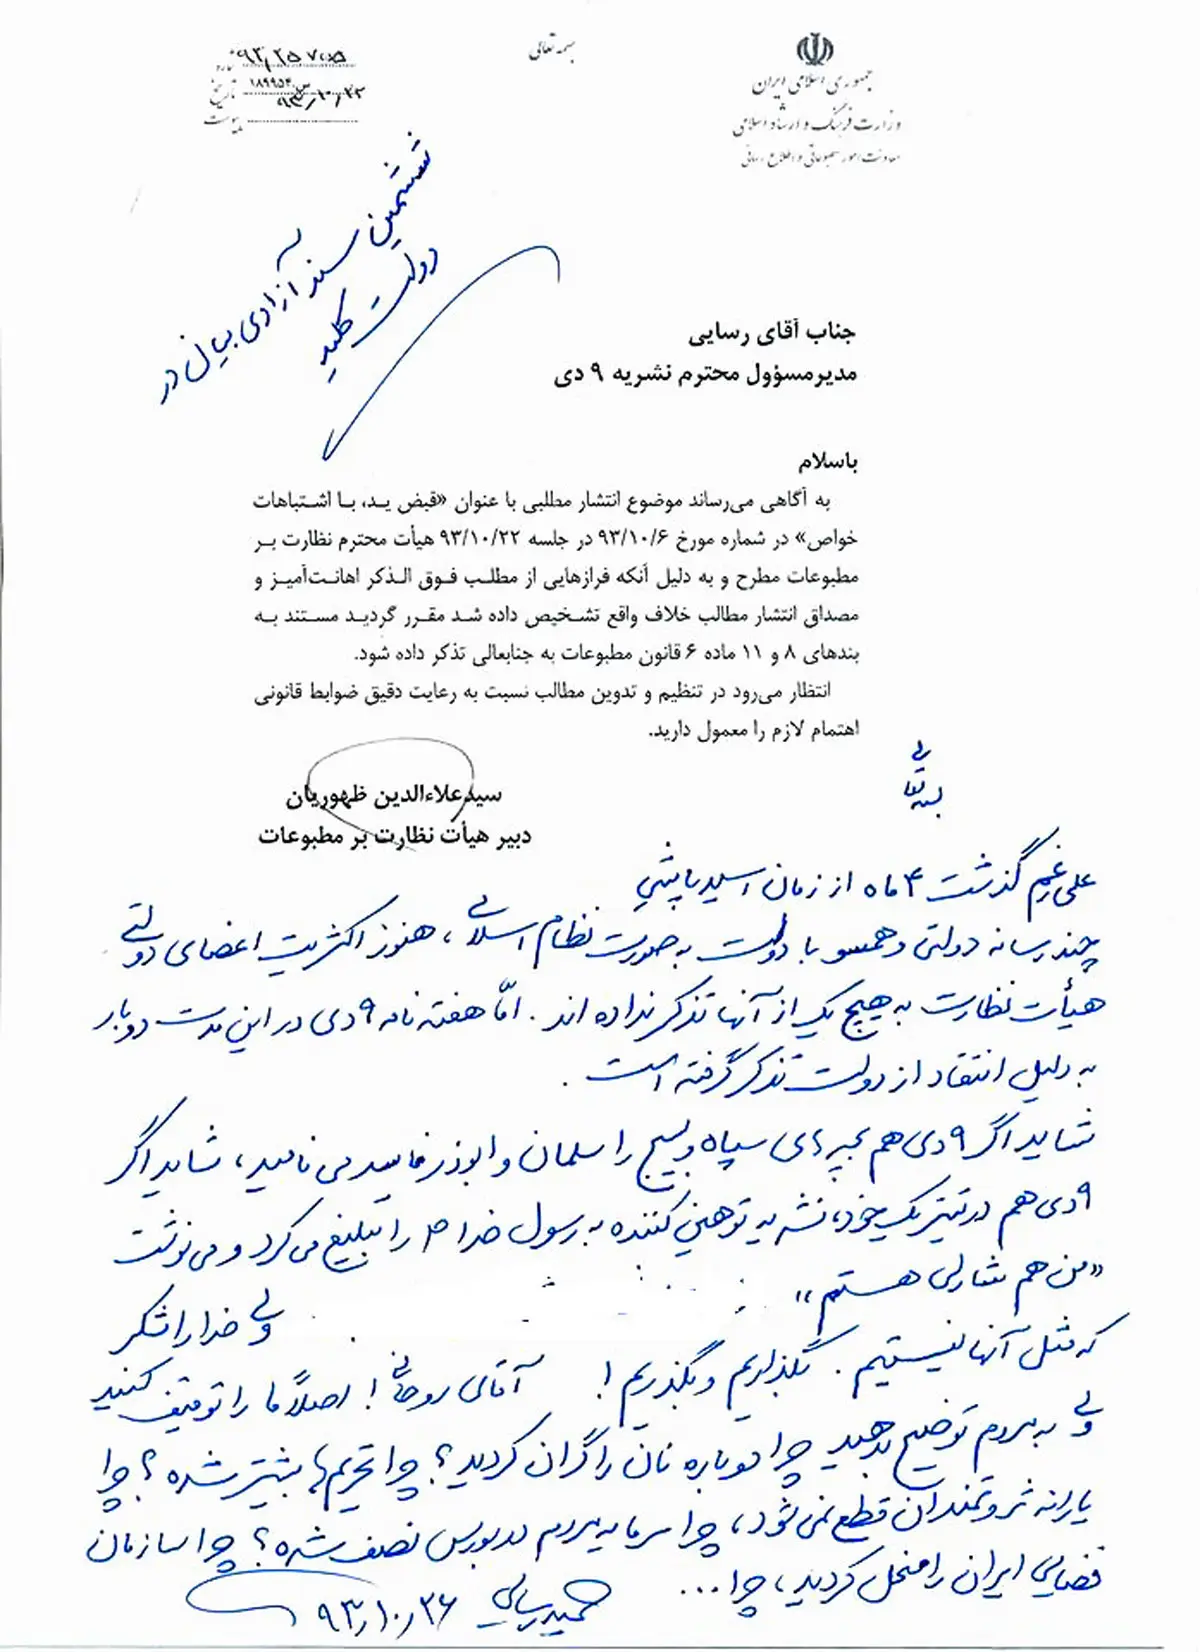 بسمه تعالی
جمهوری اسلامی ایران
وزارت فرهنگ و ارشاد اسلامی
معاونت امور مطبوعاتی و اطلاع رسانی
شماره
تاریخ ۹۳/۱۰/۲۳
پیوست
ششمین سند آزادی بیان در
دولت کلید
جناب آقای رسایی
مدیرمسؤول محترم نشریه ۹ دی
باسلام
به آگاهی می‌رساند موضوع انتشار مطلبی با عنوان «قبض ید، با اشتباهات
خواص» در شماره مورخ ۹۳/۱۰/۶ در جلسه ۹۳/۱۰/۲۲ هیأت محترم نظارت بر
مطبوعات مطرح و به دلیل آنکه فرازهایی از مطلب فوق الذکر اهانت‌آمیز و
مصداق انتشار مطالب خلاف واقع تشخیص داده شد مقرر گردید مستند به
بندهای ۸ و ۱۱ ماده ۶ قانون مطبوعات به جنابعالی تذکر داده شود.
انتظار می‌رود در تنظیم و تدوین مطالب نسبت به رعایت دقیق ضوابط قانونی
اهتمام لازم را معمول دارید.
سیدعلاءالدین ظهوریان
دبیر هیأت نظارت بر مطبوعات
بسمه تعالی
علی رغم گذشت ۴ ماه از زمان اسیدپاشی
چند رسانه دولتی و همسو با دولت به صورت نظام اسلامی، هنوز اکثریت اعضای دولتی
هیأت نظارت به هیچ یک از آنها تذکر نداده اند. امّا هفته نامه ۹ دی در این مدت دو بار
به دلیل انتقاد از دولت تذکر گرفته است.
شاید اگر ۹ دی هم بچه های سپاه و بسیج را سلمان و ابوذر فاسد می نامید، شاید اگر
۹ دی هم در تیتر یک خود، نشریه توهین کننده به رسول خدا ص را تبلیغ می کرد و می نوشت
«من هم شارلی هستم»
ولی خدا را شکر
که مثل آنها نیستیم. بگذاریم و بگذریم!
آقای روحانی! اصلاً ما را توقیف کنید
ولی به مردم توضیح بدهید چرا دوباره نان را گران کردید؟ چرا تحریم‌ها بیشتر شده؟ چرا
یارانه ثروتمندان قطع نمی شود، چرا سرمایه مردم در بورس نصف شده؟ چرا سازمان
فضایی ایران را منحل کردید، چرا...
حمید رسایی
۹۳/۱۰/۲۶